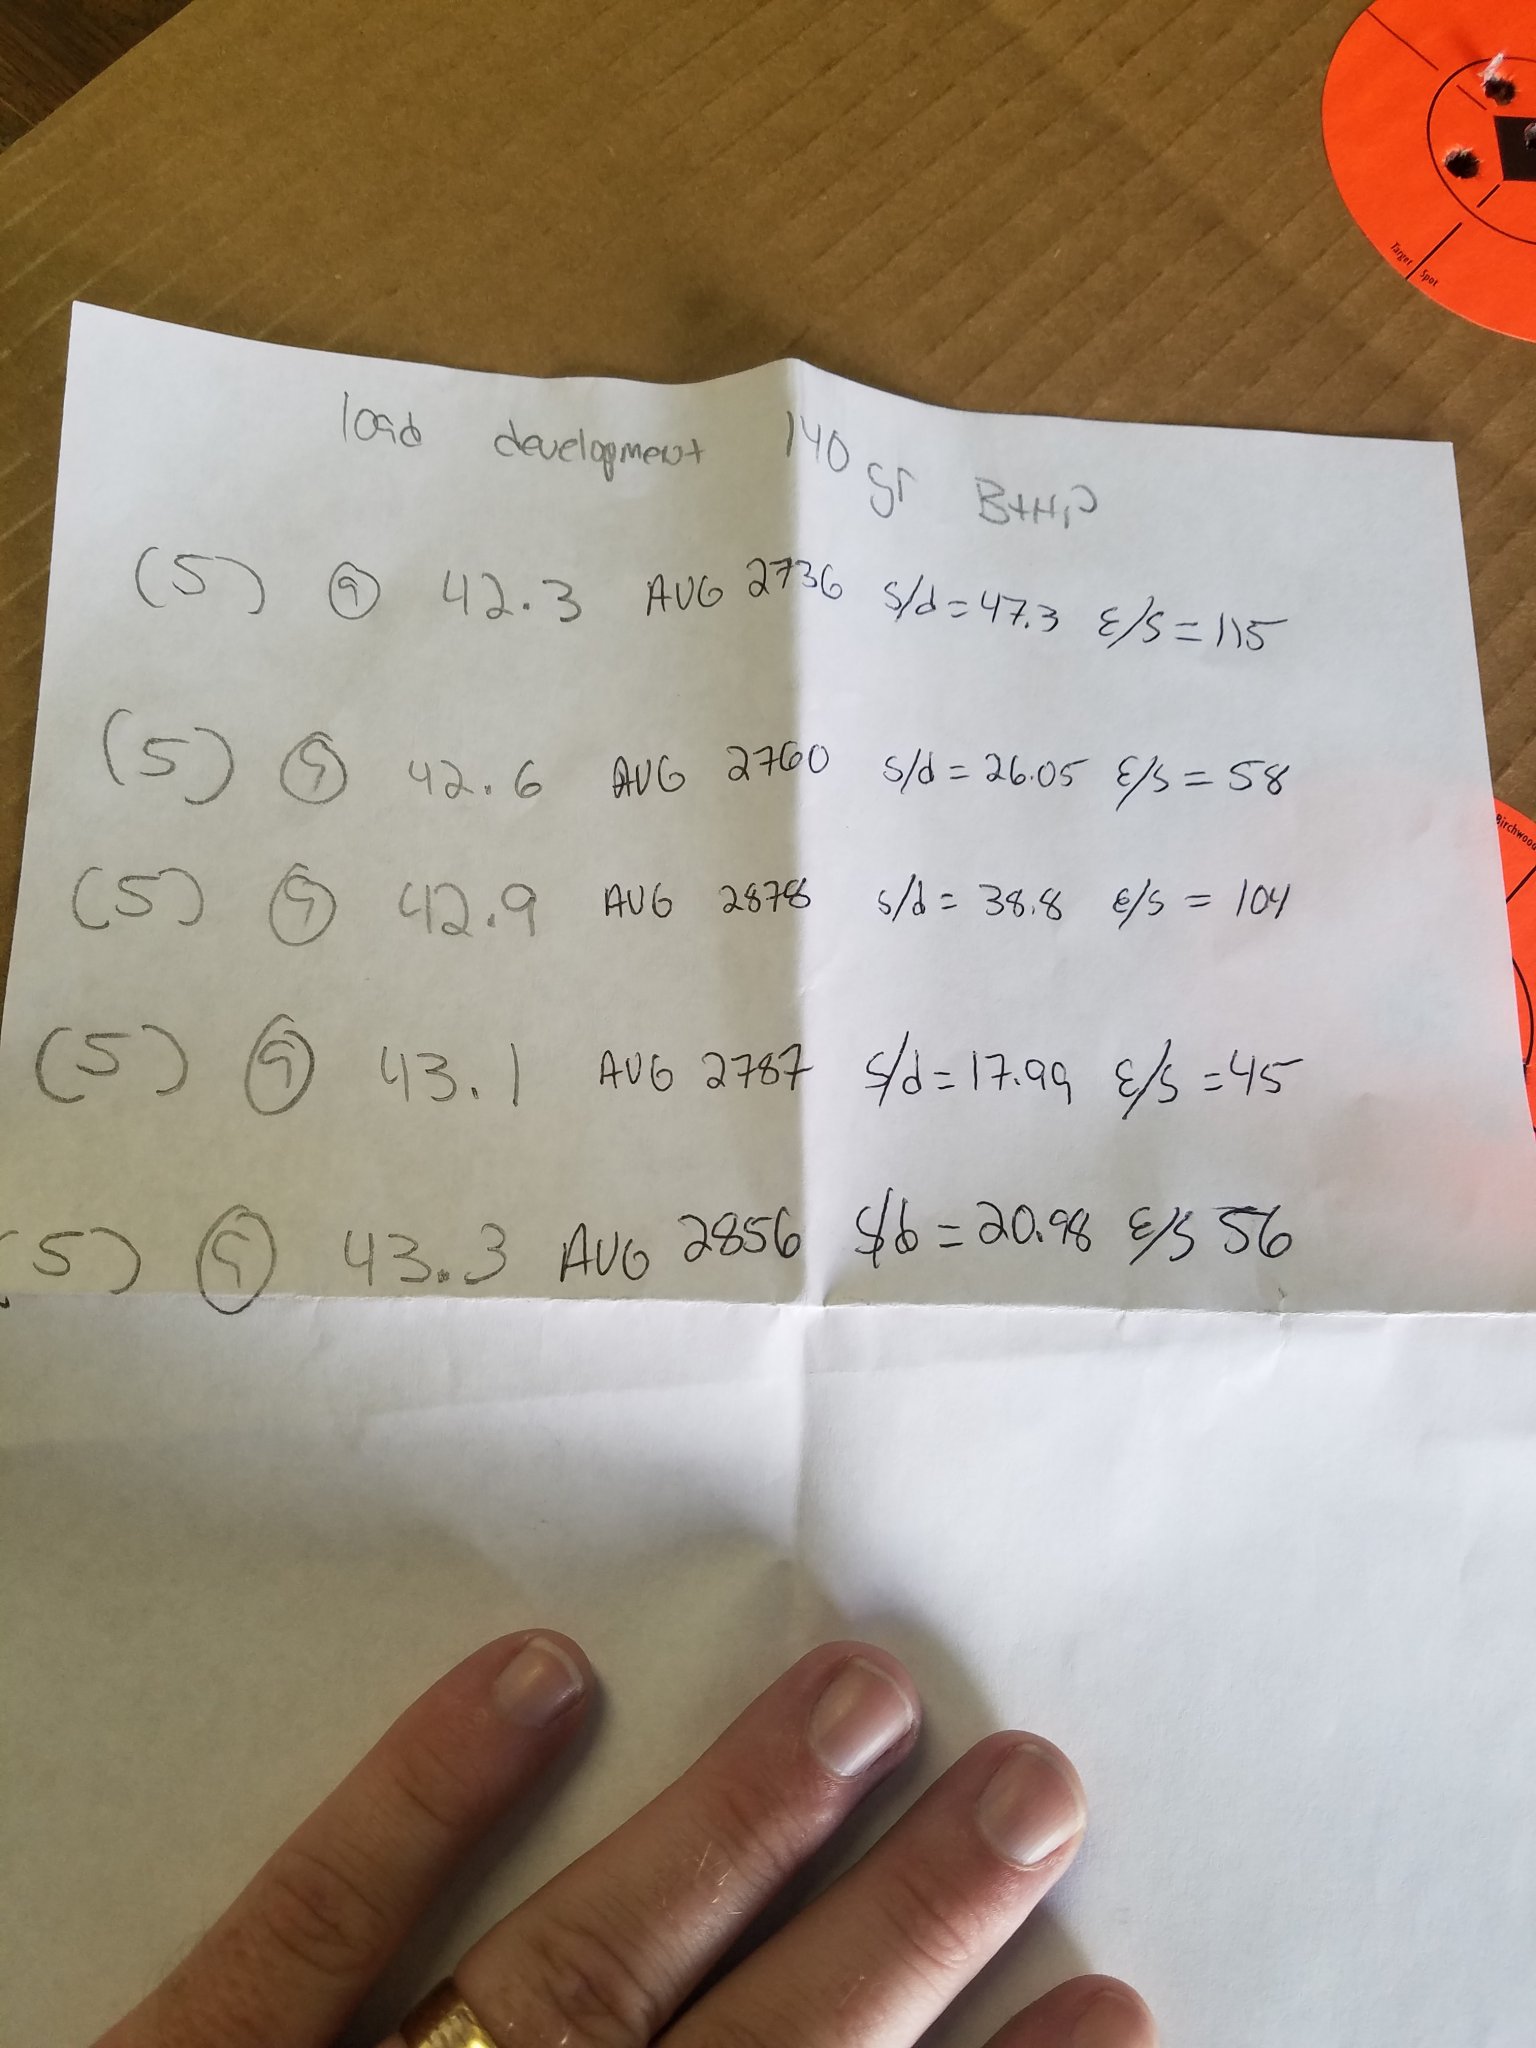 Target Spot
load development 140 gr BtHP
(5) @ 42.3 AVG 2736 S/d = 47.3 E/S = 115
(5) @ 42.6 AVG 2760 S/d = 26.05 E/S = 58
Birchwood
(5) @ 42.9 AVG 2878 S/d = 38.8 E/S = 104
(5) @ 43.1 AVG 2787 S/d = 17.99 E/S = 45
(5) @ 43.3 AVG 2856 S/d = 20.98 E/S 56